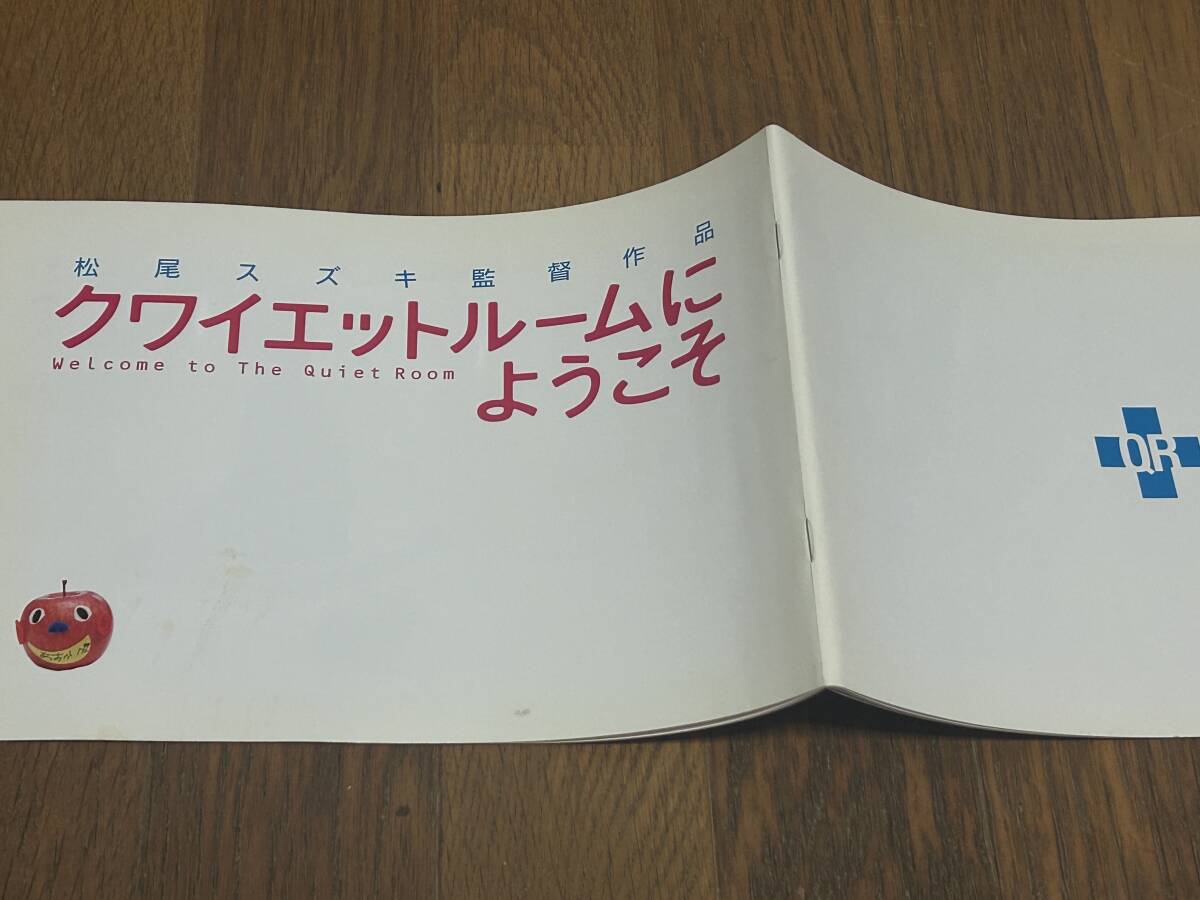 松尾スズキ監督作品
クワイエットルームに
ようこそ
Welcome to The Quiet Room
QR